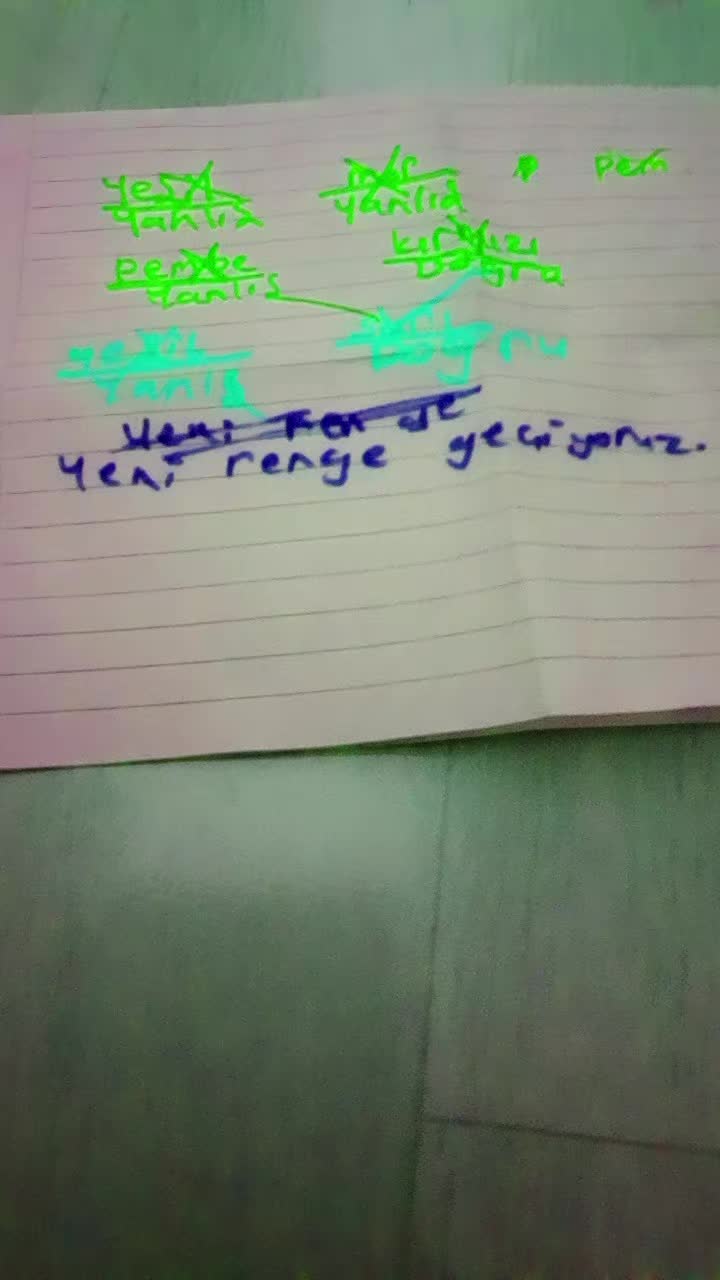 yeşil mor pem
yanlış yanlış
pembe kırmızı
yanlış Doğru
yeşil
yanlış Doğru
Yeni renge geçiyoruz.